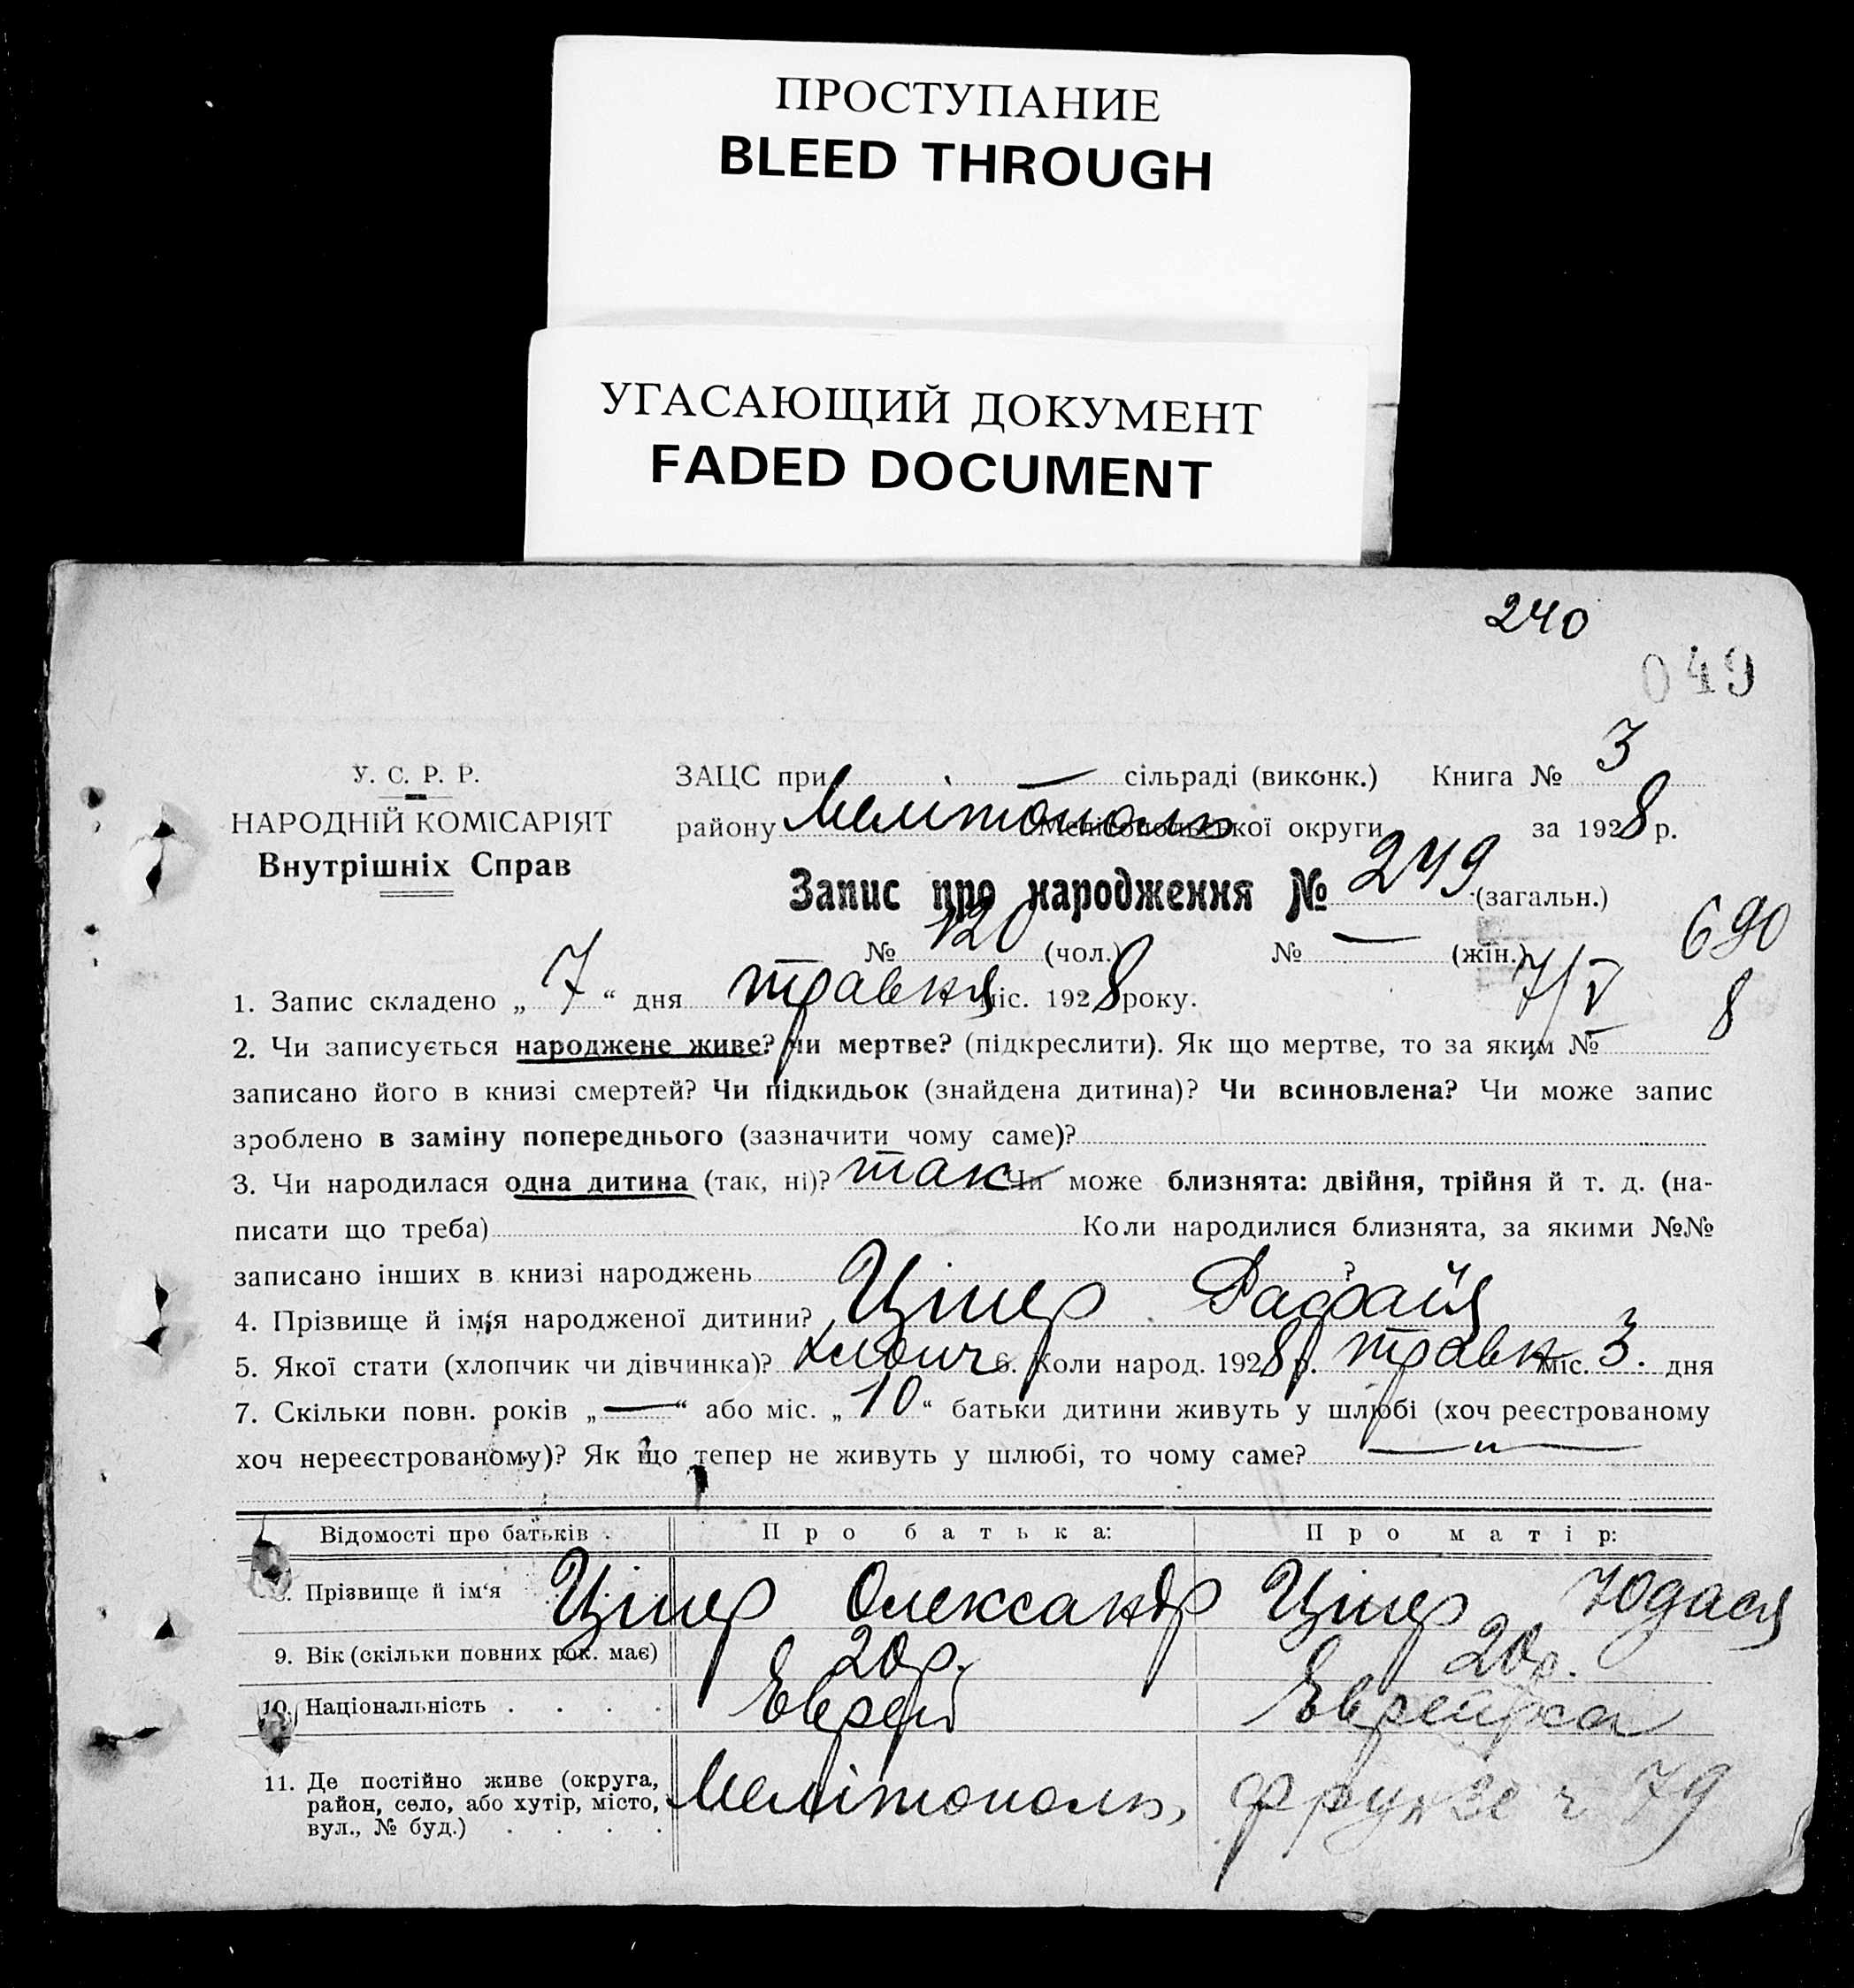 ПРОСТУПАНИЕ
BLEED THROUGH
УГАСАЮЩИЙ ДОКУМЕНТ
FADED DOCUMENT
240
049
У. С. Р. Р.
НАРОДНІЙ КОМІСАРІЯТ
Внутрішніх Справ
ЗАЦС при — сільраді (виконк.) Книга № 3
району Мелітополь Мелітопольської округи за 1928 р.
Запис про народження № 249 (загальн.)
№ 120 (чол.) № — (жін.)
690
7/V 8
1. Запис складено „ 7 “ дня травня міс. 1928 року.
2. Чи записується народжене живе? чи мертве? (підкреслити). Як що мертве, то за яким №
записано його в книзі смертей? Чи підкидьок (знайдена дитина)? Чи всиновлена? Чи може запис
зроблено в заміну попереднього (зазначити чому саме)?
3. Чи народилася одна дитина (так, ні)? так Чи може близнята: двійня, трійня й т. д. (на-
писати що треба) Коли народилися близнята, за якими №№
записано інших в книзі народжень ?
4. Прізвище й ім'я народженої дитини? Ціпер
5. Якої стати (хлопчик чи дівчинка)? хлопч 6. Коли народ. 1928 р. травн міс. 3. дня
7. Скільки повн. років „ — “ або міс. „ 10 “ батьки дитини живуть у шлюбі (хоч реєстрованому
хоч нереєстрованому)? Як що тепер не живуть у шлюбі, то чому саме? — „ —
Відомості про батьків Про батька: Про матір:
8. Прізвище й ім‘я Ціпер Олександр Ціпер
9. Вік (скільки повних рок. має) 20 р. 20 р.
10. Національність . . . . Еврей Еврейка
11. Де постійно живе (округа,
район, село, або хутір, місто,
вул., № буд.) . . . . Мелітополь, Фрунзе ч 79